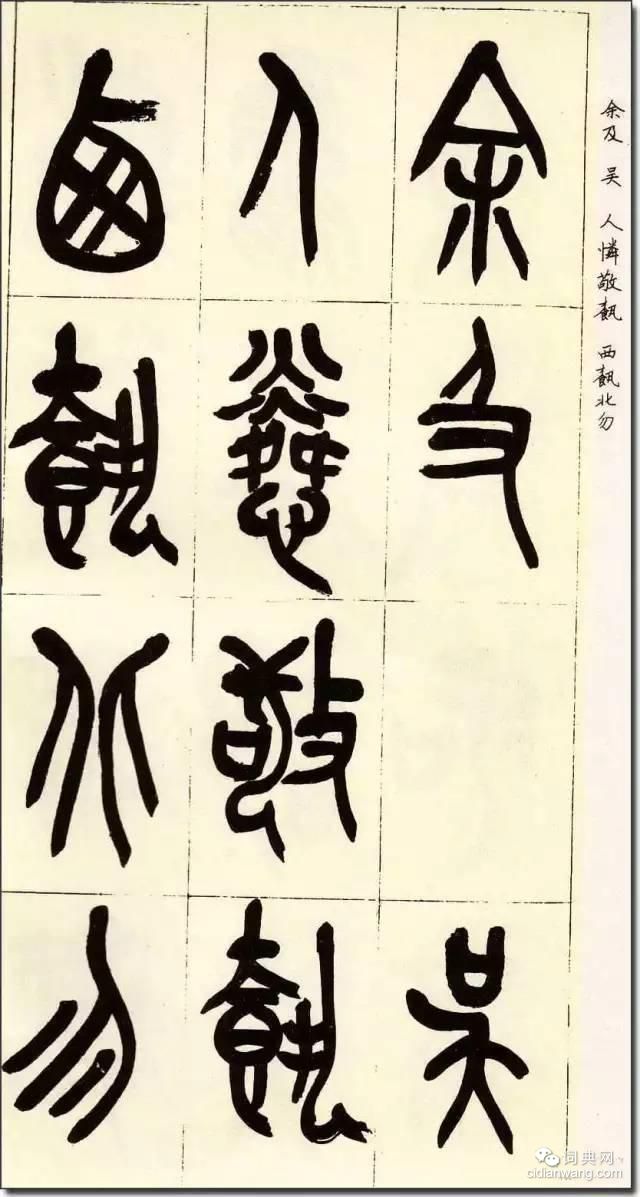 余及 吴 人憐敬 西 北勿
余及 吴
人憐敬
西 北勿
词典网
cidianwang.com